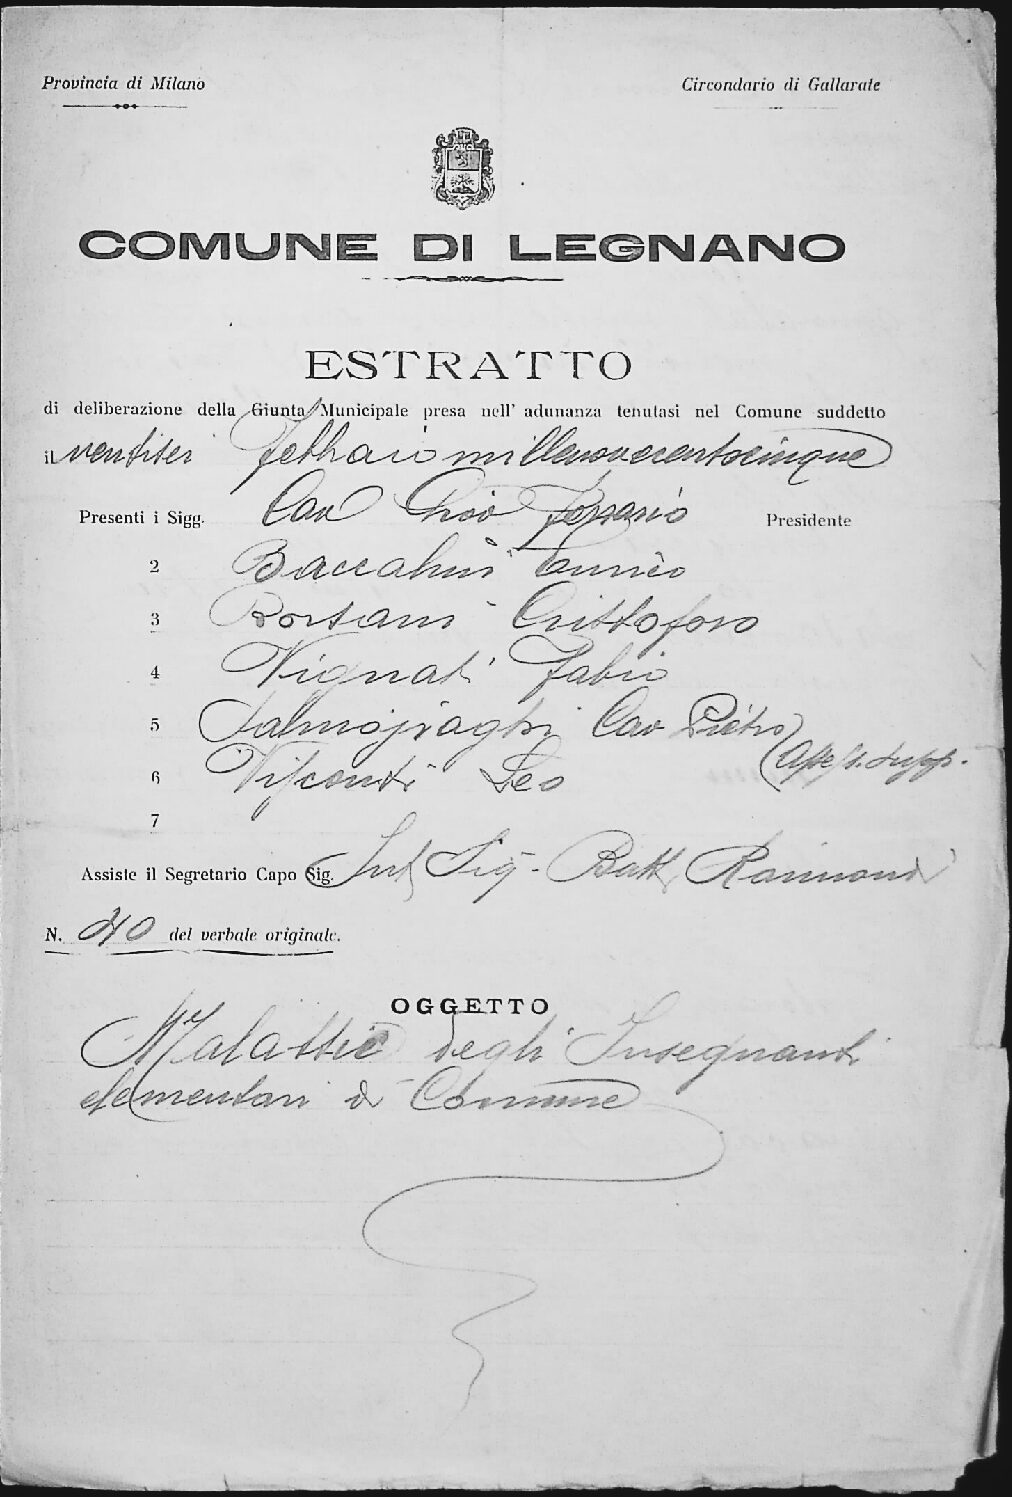 Provincia di Milano
Circondario di Gallarate
COMUNE DI LEGNANO
ESTRATTO
di deliberazione della Giunta Municipale presa nell' adunanza tenutasi nel Comune suddetto
il ventisei febbraio millenovecentocinque
Presenti i Sigg. Cav Presidente
2 Enrico
3 Borsani Cristoforo
4 Vignati Fabio
5 Salmojraghi Cav Pietro
6 Visconti Leo
7
Assiste il Segretario Capo Sig. Int Sig. Raimondi
N. 40 del verbale originale.
OGGETTO
Malattie degli Insegnanti
elementari di Comune